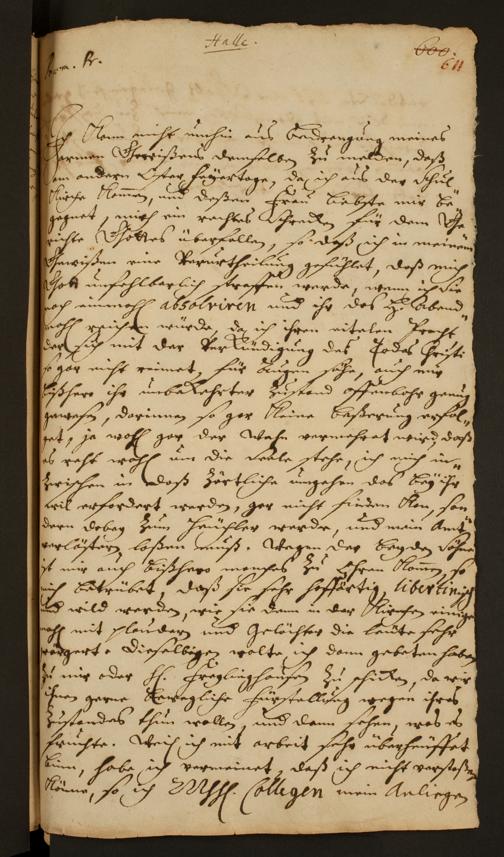 Halle.
600.
611
Ich kan nicht umhin aus bedrengung meines
armen Gewißens demselben zu melden, daß
am andern Oster feyertage, da ich aus der Schul
Kirche kommen, und deßen Frau liebste mir be-
gegnet, mich ein rechtes schrecken für dem Ge-
richte Gottes überfallen, so daß ich in meinem
Gewißen eine Verurtheilung gefühlet, daß mich
Gott unfehlbarlich straffen werde, wenn ich sie
noch einmahl absolviren und ihr das H. Abend-
mahl reichen würde, da ich ihren eitelen Pracht
der sich mit der Verkündigung des Todes Christi
so gar nicht reimet, für Augen sehe, auch mir
bißhero ihr unbekehrter Zustand offenbahr genug
gewesen, darinnen so gar keine beßerung erfol-
get, ja wohl gar der Wahn vermehret wird, daß
es recht wohl um die Seele stehe, ich mich in-
zwischen in das zärtliche umgehen das bey ihr
will erfordert werden, gar nicht finden kan, son
dern dabey zum heuchler werde, und mein Amt
verlästern laßen muß. Wegen der beyden Söhne
ist mir auch bißhero manches zu Ohren kommen, so
mich betrübet, daß sie sehr hoffärtig, libertinisch
und wild werden, wie sie dann in der Kirchen einige
mahl mit plaudern und Gelächter die leute sehr
geärgert. Dieselbigen wolte ich dann gebeten haben
zu mir oder H. Freylinghausen zu schicken, da wir
ihnen gerne bewegliche fürstellung wegen ihres
Zustandes thun wollen, und dann sehen, was es
fruchte. Weil ich mit arbeit sehr überhäuffet
binn, habe ich vermeinet, daß ich nicht verstoßen
könne, so ich Collegen mein Anliegen